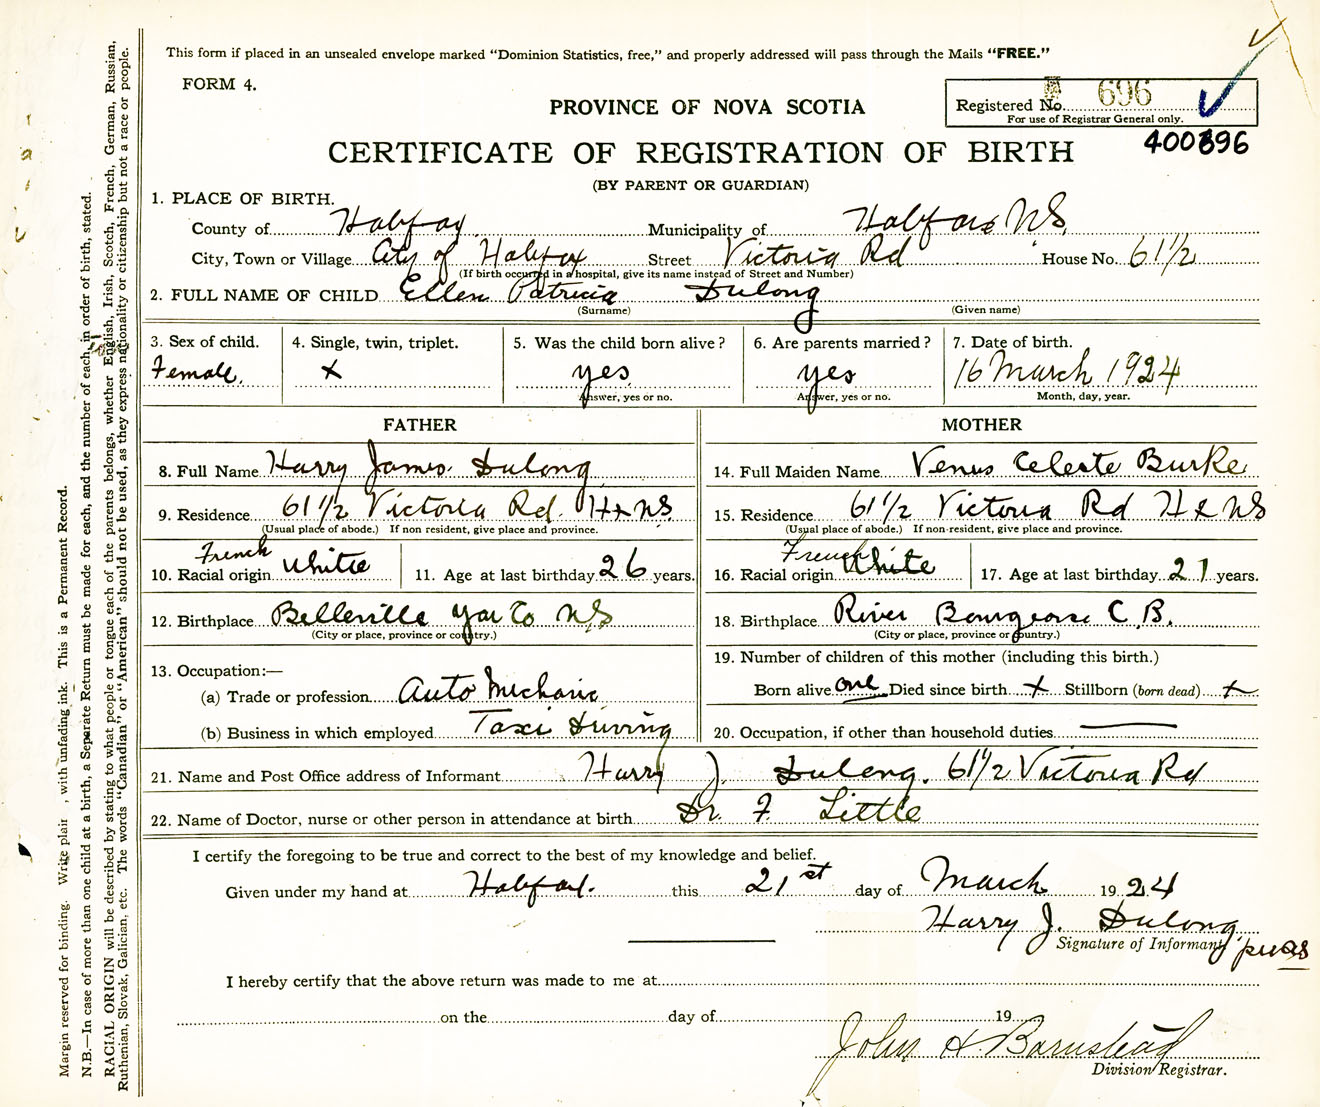 This form if placed in an unsealed envelope marked "Dominion Statistics, free," and properly addressed will pass through the Mails "FREE."
FORM 4.
Registered No. 696
For use of Registrar General only.
400896
PROVINCE OF NOVA SCOTIA
CERTIFICATE OF REGISTRATION OF BIRTH
(BY PARENT OR GUARDIAN)
1. PLACE OF BIRTH.
County of Halifax Municipality of Halifax NS
City, Town or Village City of Halifax Street Victoria Rd House No. 61 1/2
(If birth occurred in a hospital, give its name instead of Street and Number)
2. FULL NAME OF CHILD Ellen Patricia Dulong
(Surname) (Given name)
3. Sex of child. 4. Single, twin, triplet. 5. Was the child born alive? 6. Are parents married? 7. Date of birth.
Female. x yes yes 16 March 1924
Answer, yes or no. Answer, yes or no. Month, day, year.
FATHER MOTHER
8. Full Name Harry James Dulong 14. Full Maiden Name Venus Celeste Burke
9. Residence 61 1/2 Victoria Rd. Hx NS 15. Residence 61 1/2 Victoria Rd Hx NS
(Usual place of abode.) If non resident, give place and province. (Usual place of abode.) If non-resident, give place and province.
French French
10. Racial origin White 11. Age at last birthday 26 years. 16. Racial origin White 17. Age at last birthday 21 years.
12. Birthplace Belleville Yar Co NS 18. Birthplace River Bourgeoise C.B.
(City or place, province or country.) (City or place, province or country.)
13. Occupation:— 19. Number of children of this mother (including this birth.)
(a) Trade or profession Auto Mechanic Born alive one Died since birth x Stillborn (born dead) x
(b) Business in which employed Taxi Driving 20. Occupation, if other than household duties
21. Name and Post Office address of Informant Harry J. Dulong. 61 1/2 Victoria Rd
22. Name of Doctor, nurse or other person in attendance at birth Dr. F. Little
I certify the foregoing to be true and correct to the best of my knowledge and belief.
Given under my hand at Halifax. this 21st day of March 1924
Harry J. Dulong
Signature of Informant
I hereby certify that the above return was made to me at
on the day of 19
John H. Barnstead
Division Registrar.
Margin reserved for binding. Write plain , with unfading ink. This is a Permanent Record.
N.B.—In case of more than one child at a birth, a Separate Return must be made for each, and the number of each, in order of birth, stated.
RACIAL ORIGIN will be described by stating to what people or tongue each of the parents belongs, whether English, Irish, Scotch, French, German, Russian,
Ruthenian, Slovak, Galician, etc. The words "Canadian" or "American" should not be used, as they express nationality or citizenship but not a race or people.